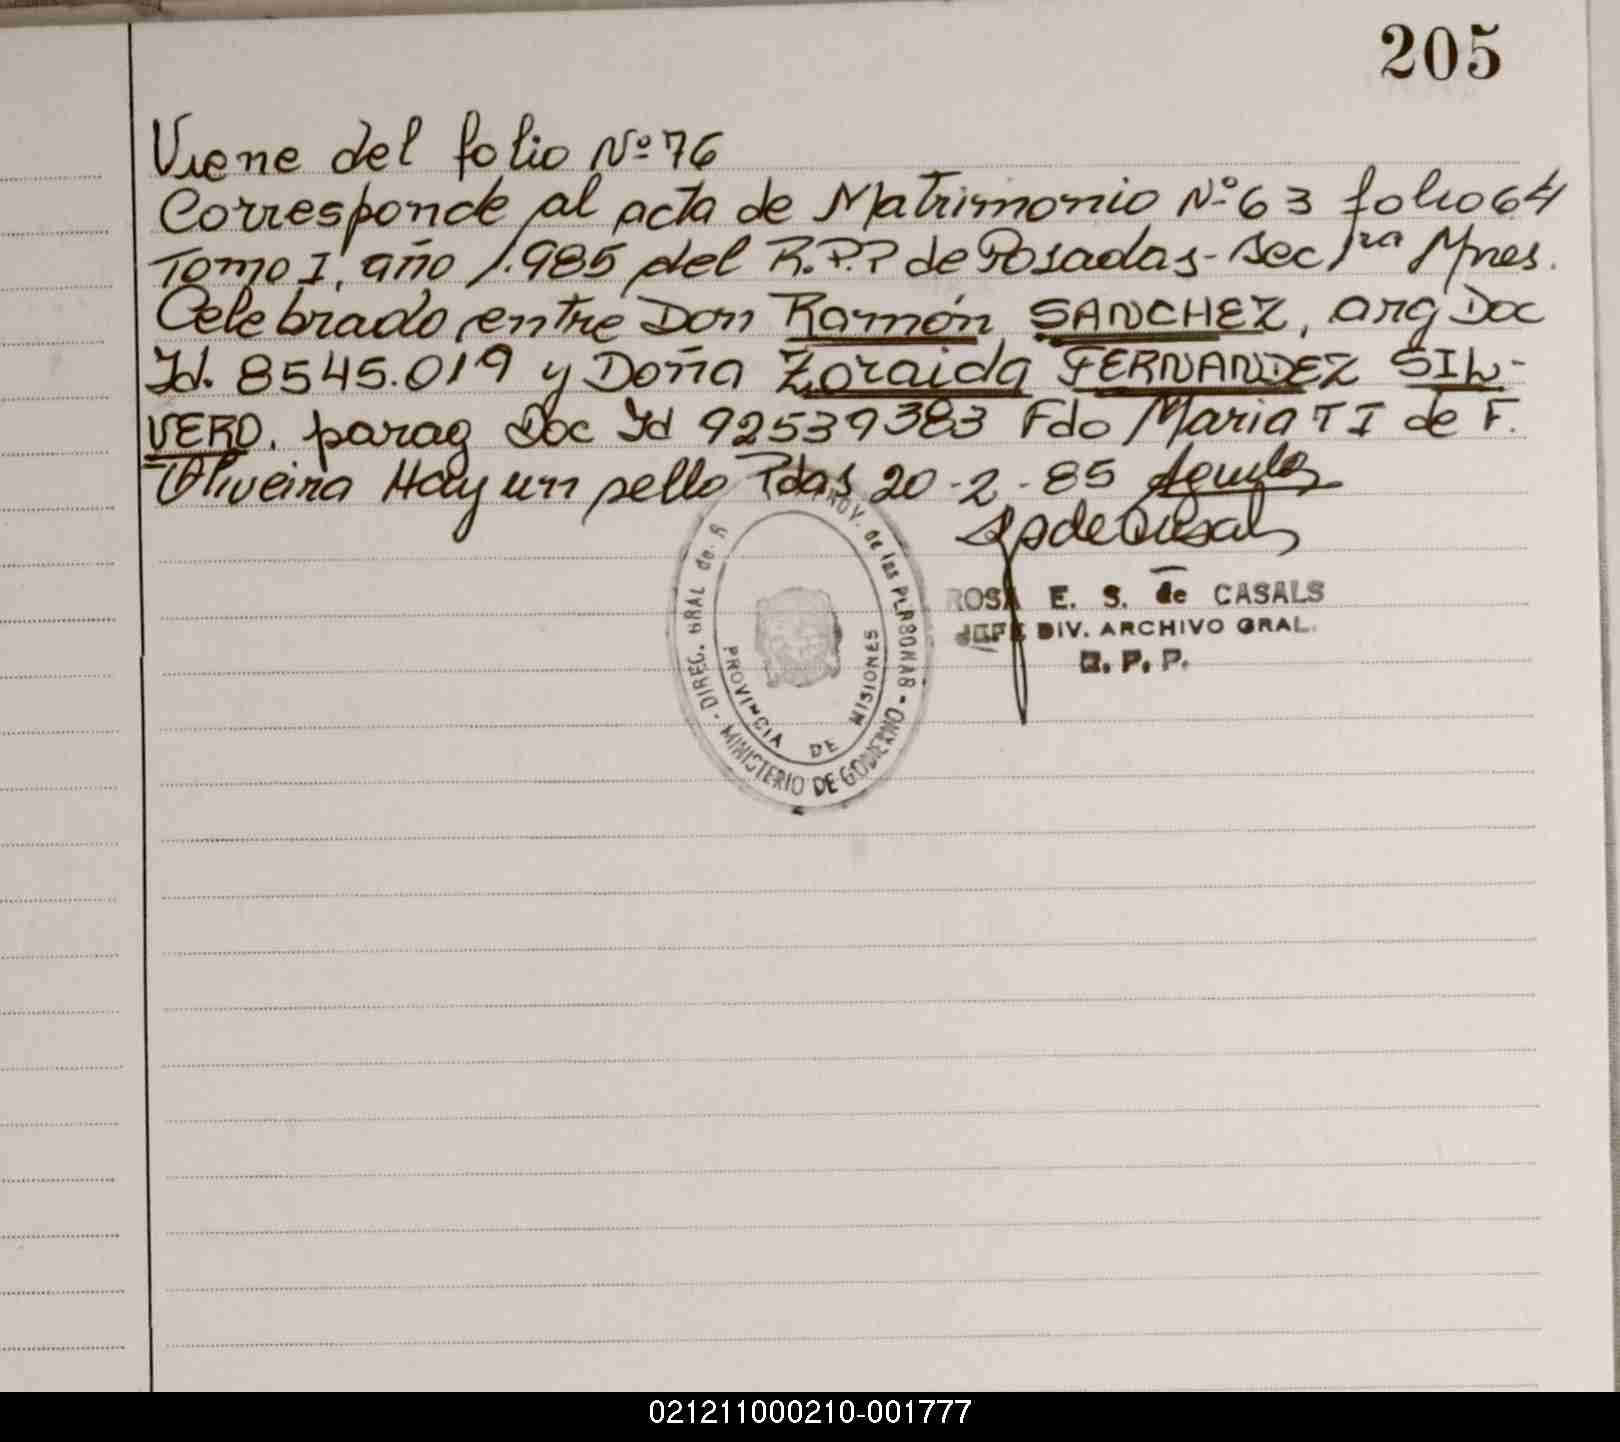 205
Viene del folio Nº 76
Corresponde al acta de Matrimonio Nº 63 folio 64
Tomo I, año 1.985 del R.P.P de Posadas - Sec 1ra Mnes.
Celebrado entre Don Ramón SANCHEZ, arg Doc
Id. 8545.019 y Doña Zoraida FERNANDEZ SIL-
VERO. parag Doc Id 92539383 Fdo Maria T I de F.
Oliveira Hay un sello Pdas 20-2-85
ROSA E. S. de CASALS
JEFE DIV. ARCHIVO GRAL.
R. P. P.
DIREC. GRAL de. R PROV. de las PERSONAS - MINISTERIO DE GOBIERNO -
PROVINCIA DE MISIONES
021211000210-001777